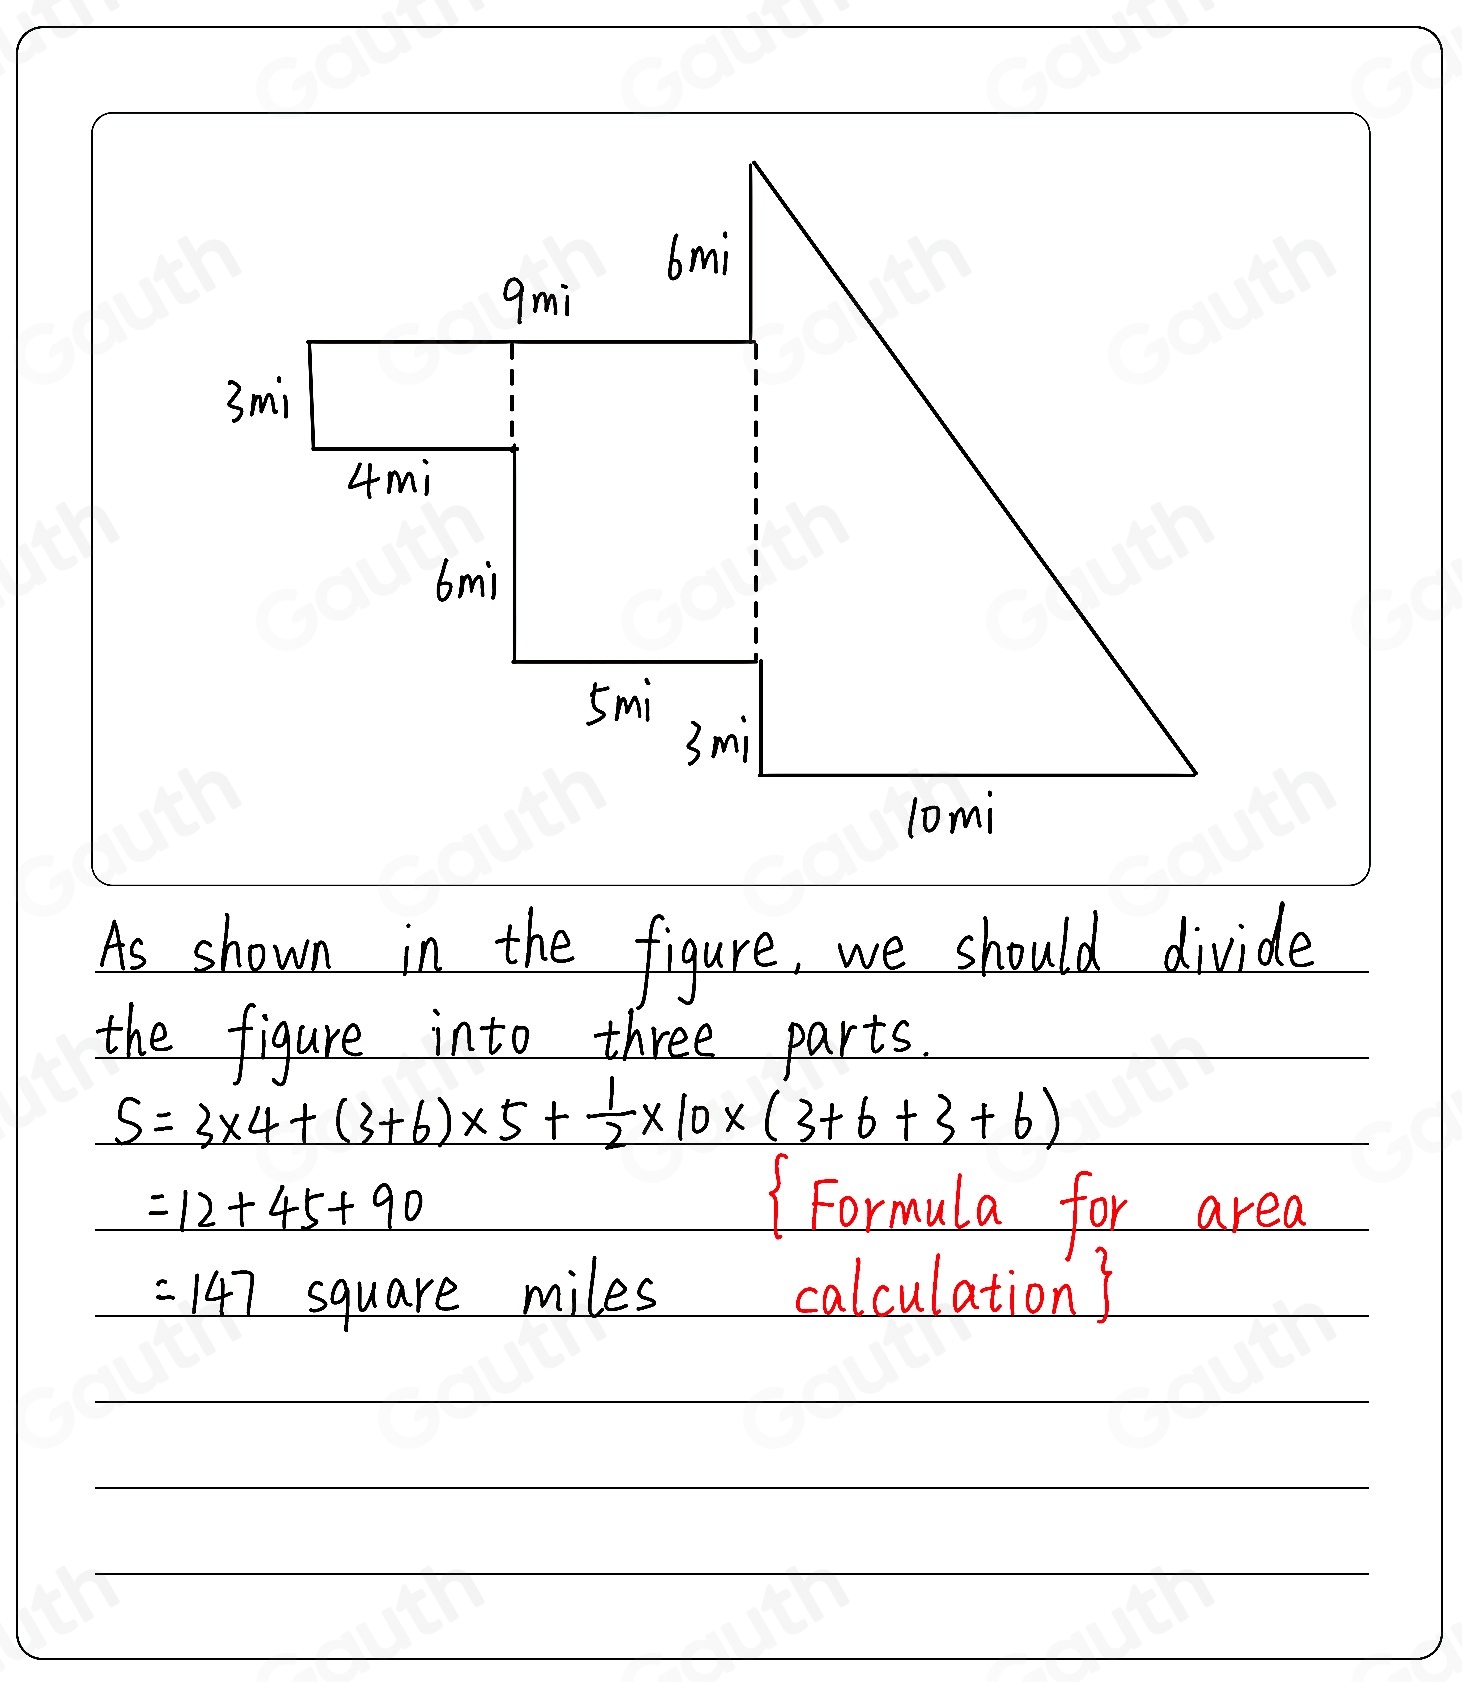 6mi
9mi
3mi
4mi
6mi
5mi
3mi
10mi
As shown in the figure, we should divide
the figure into three parts.
S=3×4+(3+6)×5+1/2×10×(3+6+3+6)
=12+45+90
{Formula for area
=147 square miles
calculation}
Gauth